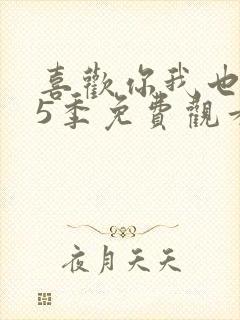 喜歡你我也
5季免費觀看
夜月天天